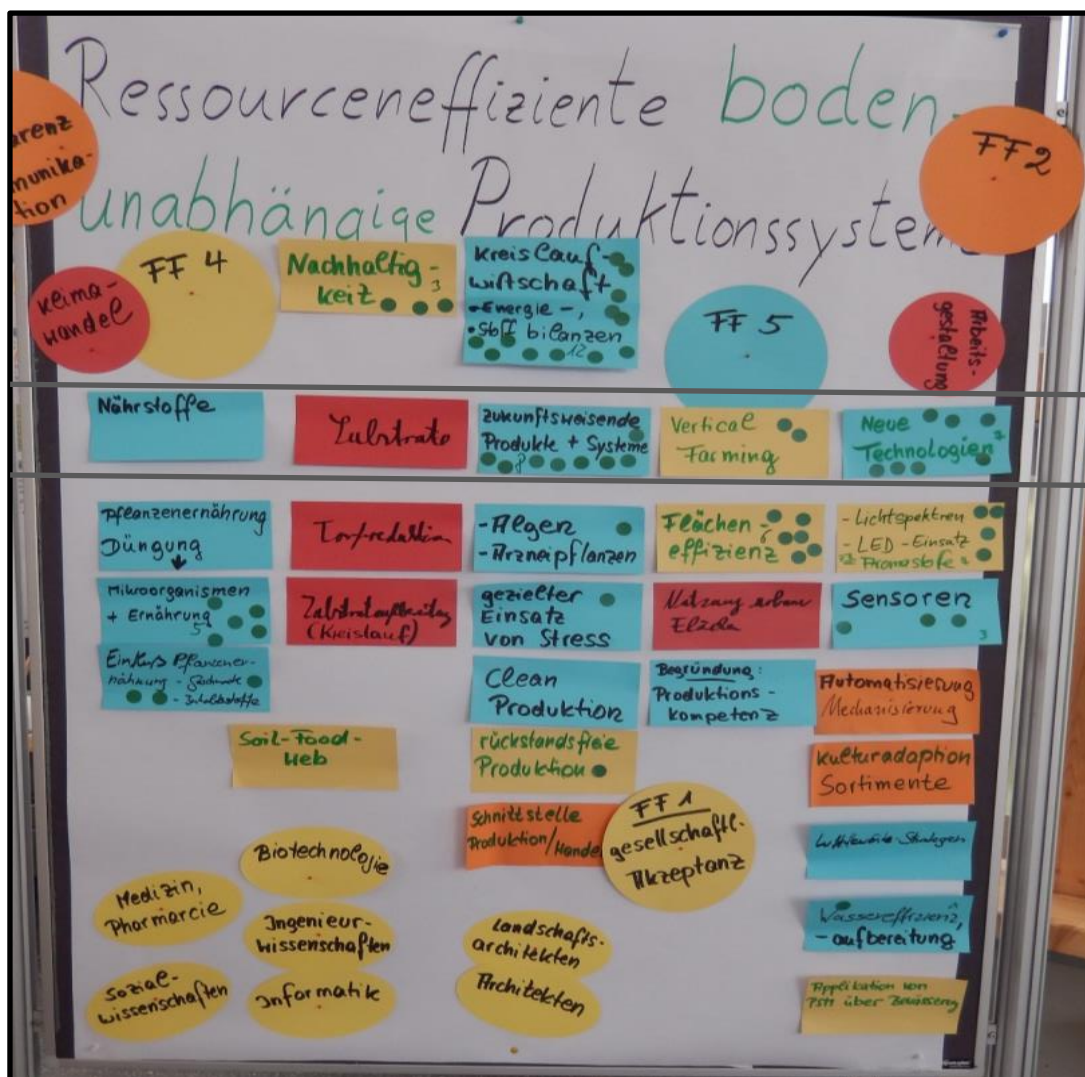 Ressourceneffiziente boden-
unabhängige Produktionssystem
arenz
munika-
tion
FF2
Klima-
wandel
FF 4
Nachhaltig-
keit
3
Kreislauf-
wirtschaft
- Energie -,
• Stoff bilanzen
12
FF 5
Arbeits-
gestaltung
Nährstoffe
Substrate
zukunftsweisende
Produkte + Systeme
8
Vertical
Farming
Neue
Technologien
Pflanzenernährung
Düngung
Torfreduktion
- Algen
- Arzneipflanzen
Flächen-
effizienz
6
- Lichtspektren
- LED - Einsatz
Mikroorganismen
+ Ernährung
5
Substrataufbereitung
(Kreislauf)
gezielter
Einsatz
von Stress
Nutzung urbaner
Sensoren
3
Einfluss Pflanzener-
nährung - Geschmack
- Inhaltsstoffe
Clean
Produktion
Begründung:
Produktions-
kompetenz
Automatisierung
Mechanisierung
Soil-Food-
Web
rückstandsfreie
Produktion
Kulturadaption
Sortimente
Schnittstelle
Produktion/Handel
FF 1
gesellschaftl.
Akzeptanz
Biotechnologie
Medizin,
Pharmarcie
Ingenieur-
wissenschaften
Landschafts-
architekten
Wassereffizienz,
-aufbereitung
Sozial-
wissenschaften
Informatik
Architekten
Applikation von
PSM über Bewässerung